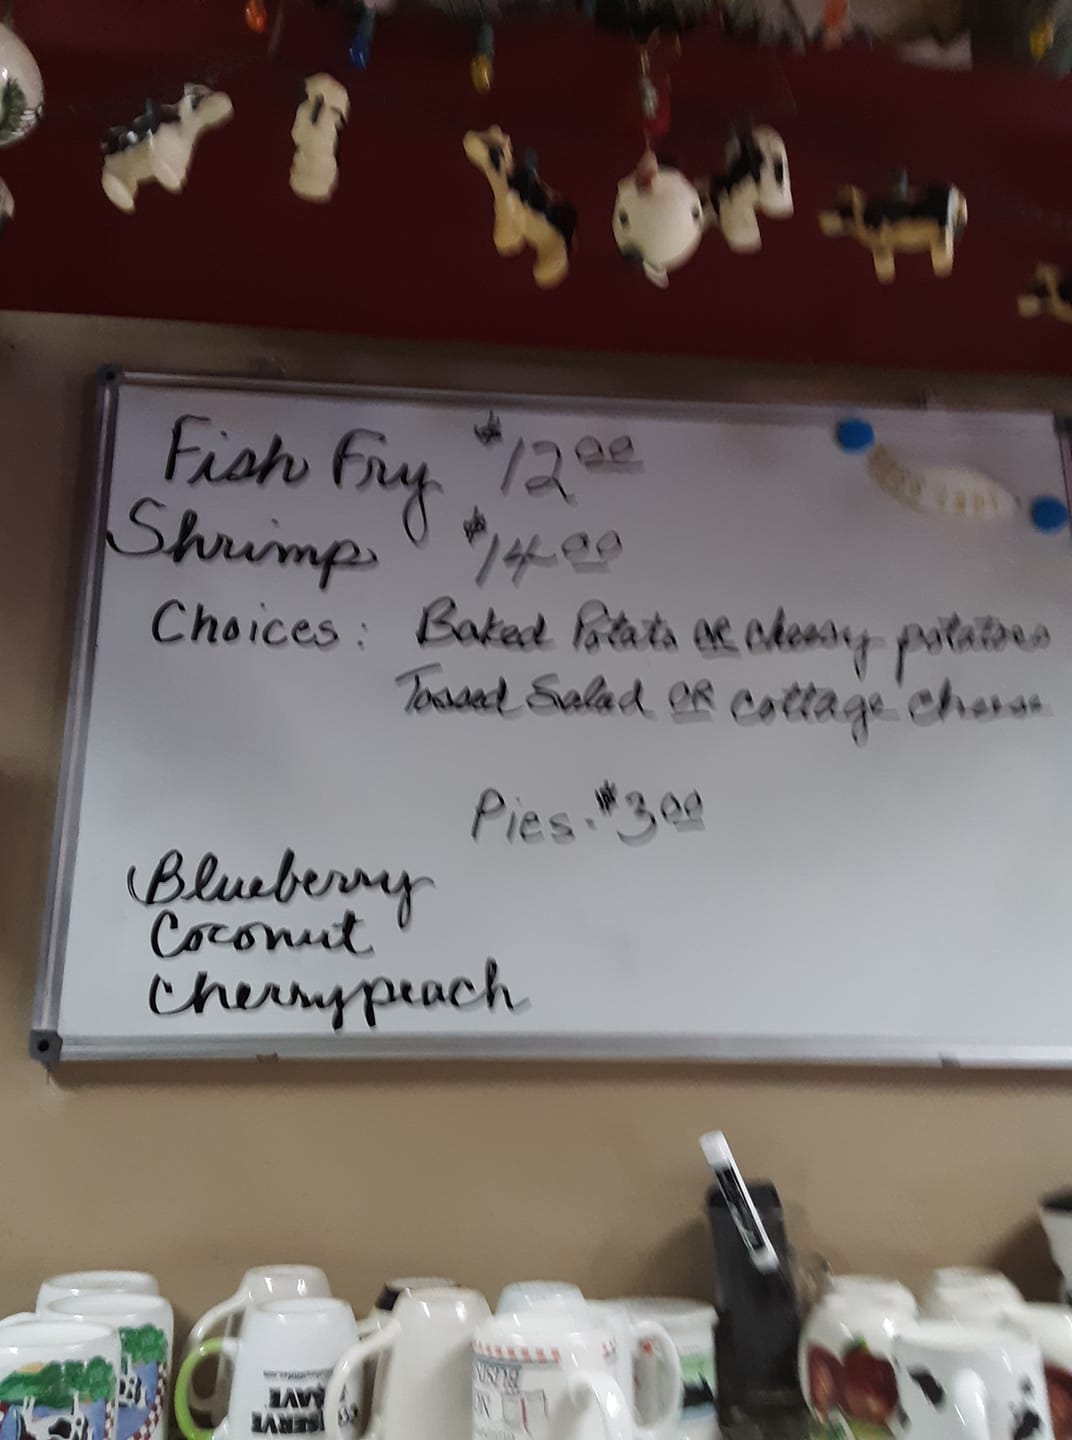 Fish Fry $12.00
Shrimp $14.00
Choices: Baked Potato or cheesy potatoes
Tossed Salad OR cottage cheese
Pies. $3.00
Blueberry
Coconut
Cherrypeach
SERVE
SAVE